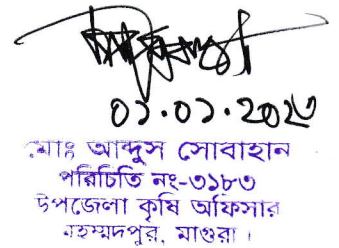 ০১.০১.২০২৩
মোঃ আব্দুস সোবাহান
পরিচিতি নং-৩১৮৩
উপজেলা কৃষি অফিসার
মহম্মদপুর, মাগুরা।